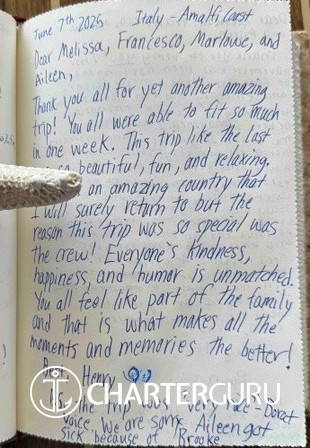 June 7th 2025 Italy - Amalfi Coast
Dear Melissa, Francesco, Marlowe, and
Aileen,
Thank you all for yet another amazing
trip! You all were able to fit so much
in one week. This trip like the last
so beautiful, fun, and relaxing.
an amazing country that
I will surely return to but the
reason this trip was so special was
the crew! Everyone's kindness,
happiness, and humor is unmatched.
You all feel like part of the family
and that is what makes all the
moments and memories the better!
Best, Henry
CHARTERGURU
the trip was "very nice" - Borat
voice. We are some Aileen got
sick because of Brooke